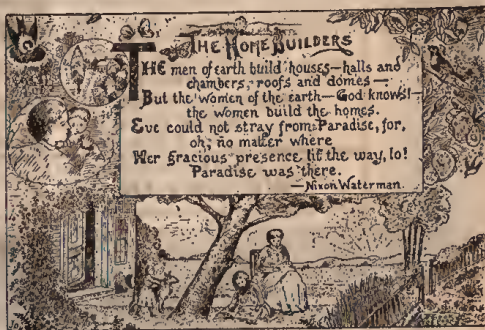 THE HOME BUILDERS
THE men of earth build houses—halls and
chambers, roofs and domes—
But the women of the earth—God knows!—
the women build the homes.
Eve could not stray from Paradise, for,
oh, no matter where
Her gracious presence lit the way, lo!
Paradise was there.
—Nixon Waterman.